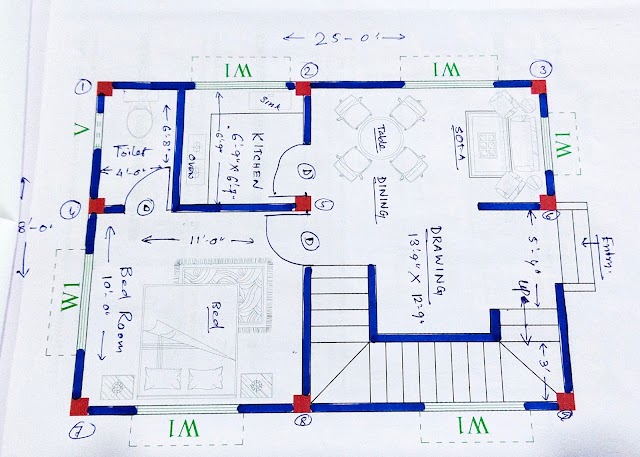 25-0"
W1
W1
1
2
3
V
Sink
6'-8"
Toilet
4'-0"
OVEN
6'-9"
KITCHEN
6'-9" X 6'-9"
D
Table
DINING
SOFA
W1
4
D
5
6
11'-0"
D
DRAWING
13'-9" X 12'-9"
5'-9"
UP
Entry
8'-0"
W1
Bed Room
10'-0"
Bed
3'
7
W1
8
W1
9